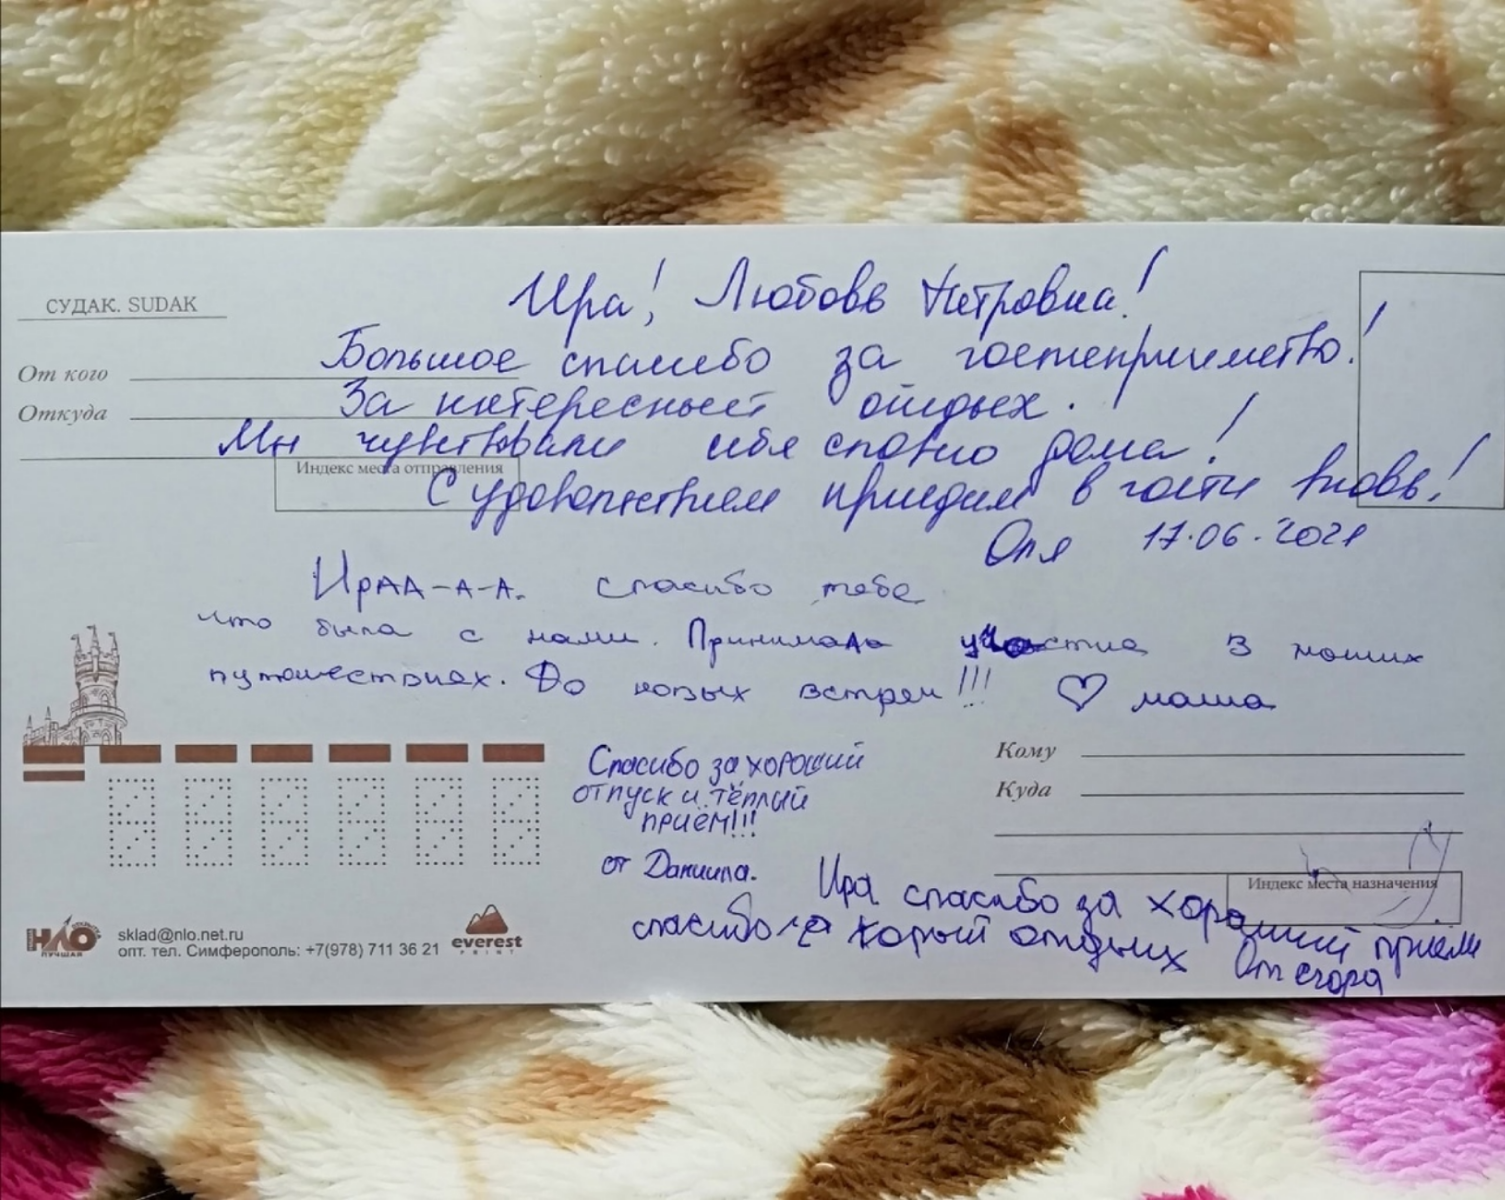 СУДАК. SUDAK
От кого
Откуда
Индекс места отправления
Ира! Любовь Петровна!
Большое спасибо за гостеприимство!
За интересный отдых.
Мы чувствовали себя словно дома!
С удовольствием приедем в гости вновь!
Оля 17.06.2021
Ираа-а-а. спасибо тебе
что была с нами. Принимала участие в наших
путешествиях. До новых встреч!!! ♡ маша
Спасибо за хороший
отпуск и тёплый
приём!!!
от Даниила.
Кому
Куда
Индекс места назначения
Ира спасибо за хороший прием
спасибо за хорый отдных От егора
НЛО
ЛУЧШАЯ
sklad@nlo.net.ru
опт. тел. Симферополь: +7(978) 711 36 21
everest
PRINT